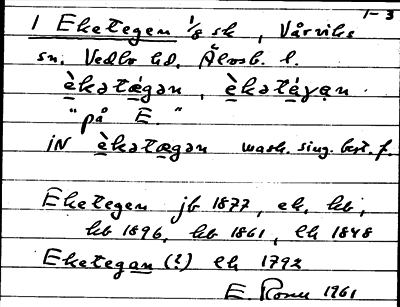 1-3
1 Eketegen 1/8 sk, Vårviks
sn. Vedbo hd. Älvsb. l.
èkətǽgən, èkətáγan.
"på E."
IN èkətægən mask. sing. best. f.
Eketegen jb 1877, ek, kb,
kb 1896, kb 1861, lh 1848
Eketegan (?) lh 1792
E. Rosén 1961